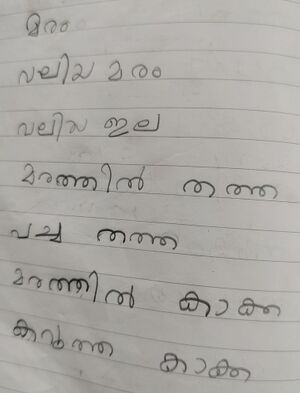 മരം
വലിയ മരം
വലിയ ഇല
മരത്തിൽ തത്ത
പച്ച തത്ത
മരത്തിൽ കാക്ക
കറുത്ത കാക്ക